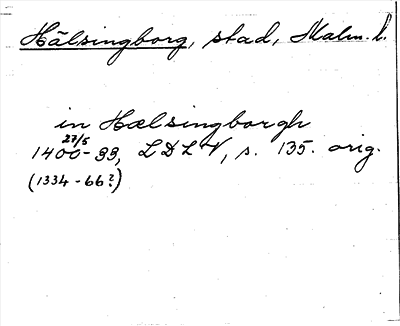 Hälsingborg, stad, Malm. l.
in Hælsingborgh
27/5
1400-33, LDLV, s. 135. orig.
(1334-66?)